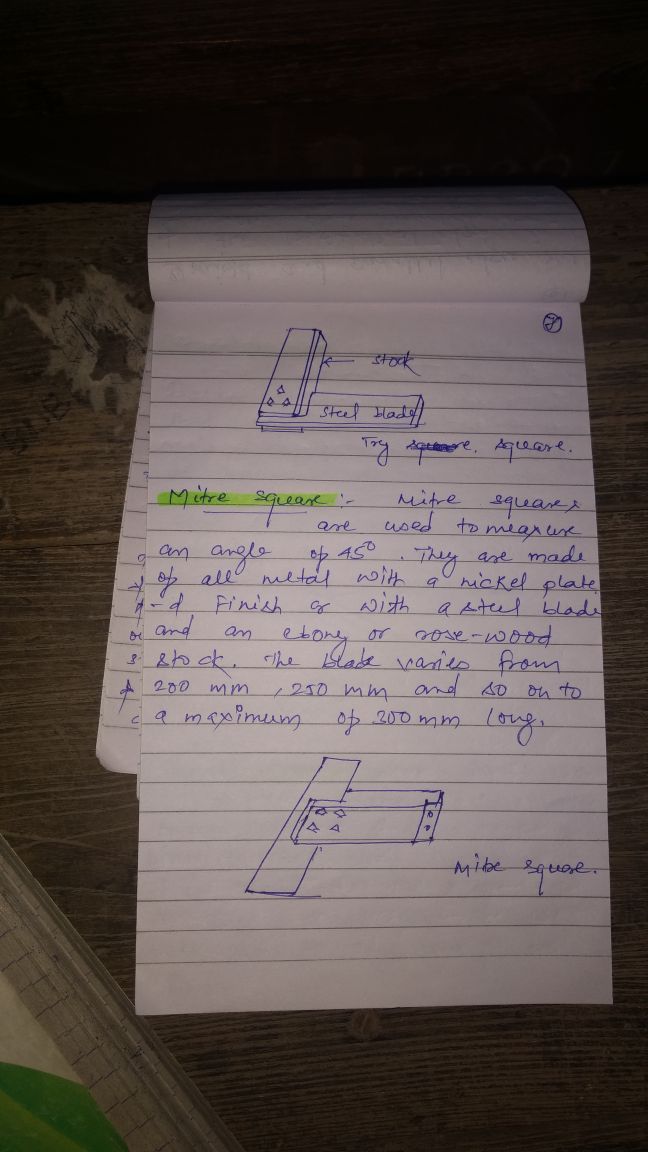 7
stock
steel blade
Try square. square.
Mitre square :- Mitre squares
are used to measure
an angle of 45°. They are made
of all metal with a nickel plate
-d finish or with a steel blade
and an ebony or rose-wood
stock. The blade varies from
200 mm, 250 mm and so on to
a maximum of 300 mm long.
Mitre square.